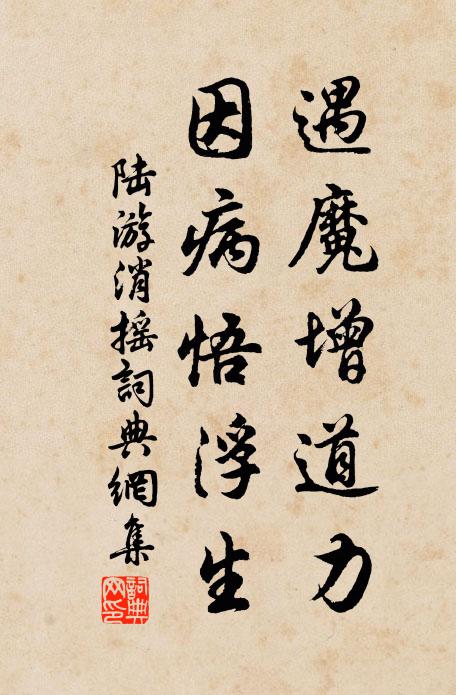 遇魔增道力
因病悟浮生
陆游消摇詞典網集
詞典
网印